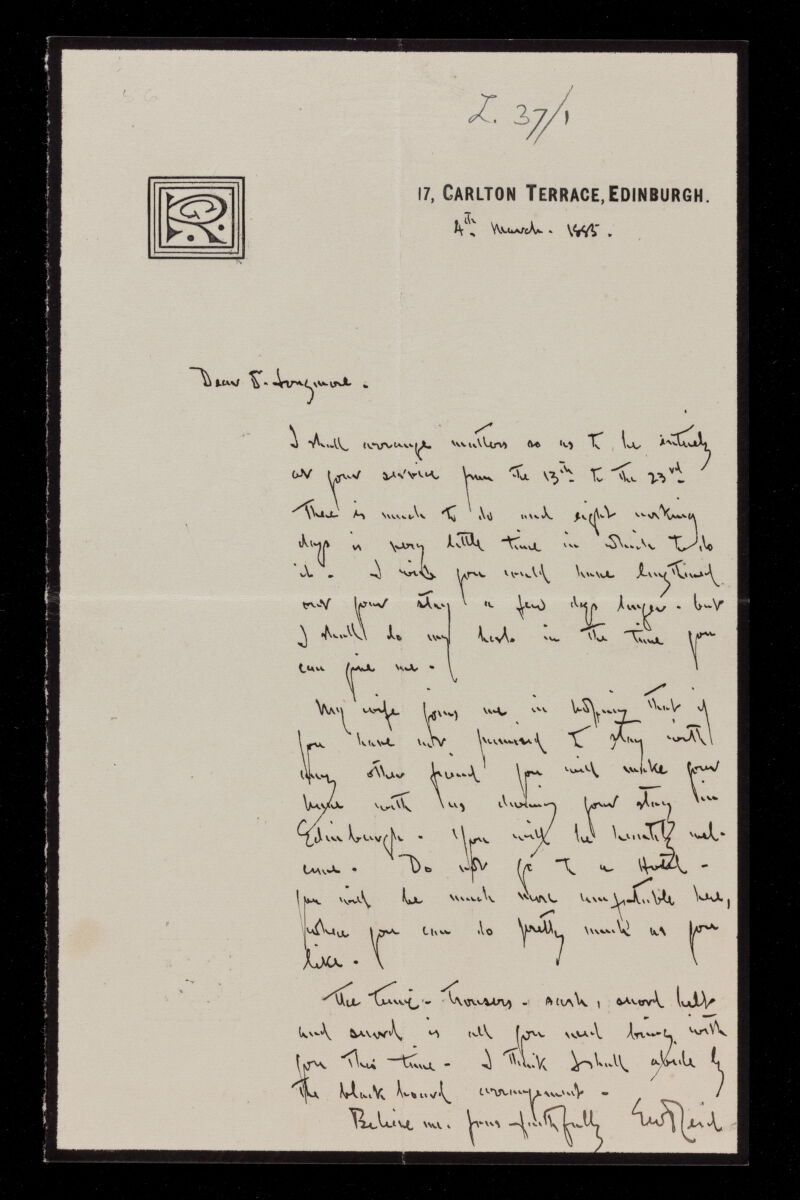 L. 37/1
17, CARLTON TERRACE, EDINBURGH.
4th March. 1885.
R
Dear Dr. Longmore.
I shall arrange matters so as to be entirely
at your service from the 13th to the 23rd
There is much to do and eight working
days is very little time in which to do
it. I wish you could have lengthened
out your stay a few days longer. but
I shall do my best in the time you
can give me.
My wife joins me in hoping that if
you have not promised to stay with
any other friend you will make your
home with us during your stay in
Edinburgh. You will be heartily wel-
come. Do not go to a Hotel -
you will be much more comfortable here,
where you can do pretty much as you
like.
The tunic - trousers - sash, sword belt
and sword is all you need bring with
you this time - I think I shall abide by
the black board arrangement -
Believe me. yours faithfully Reid